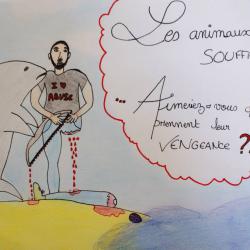 Les animaux
SOUFF
... Aimeriez-vous q
prennent leur
VENGEANCE ??
I ♥
ABUSE